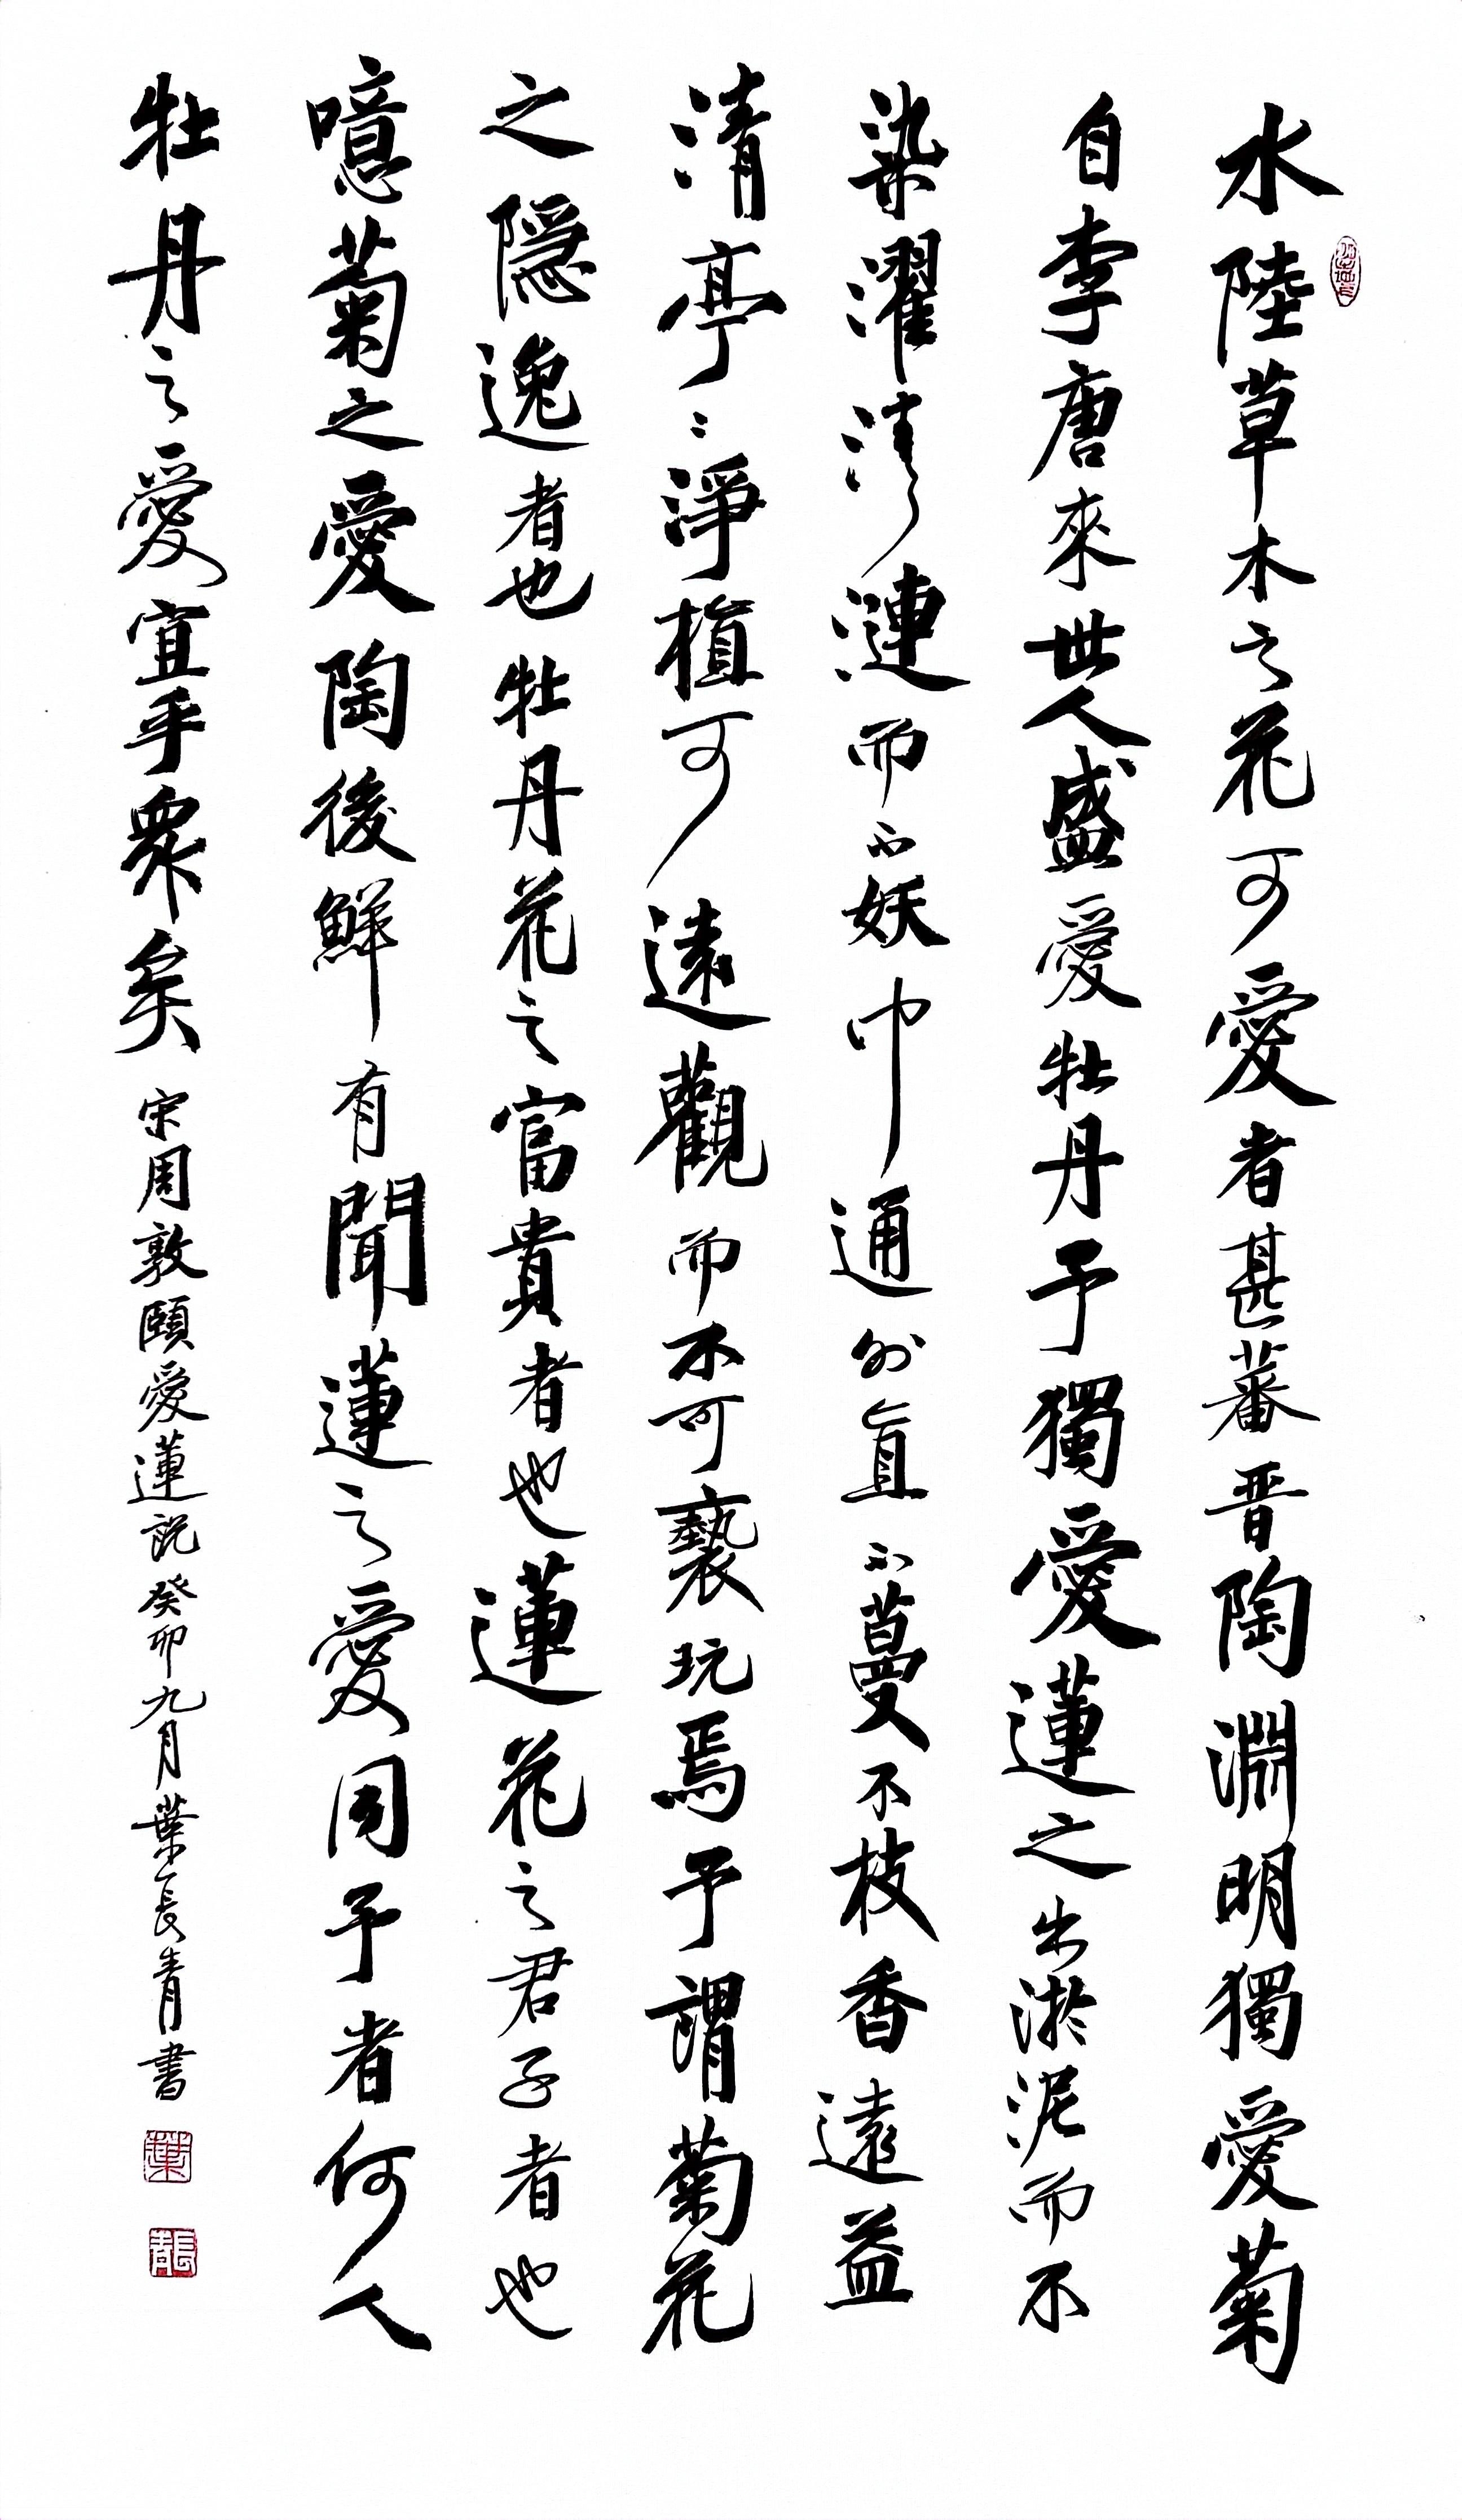 水陸草木之花可愛者甚蕃晋陶淵明獨愛菊
自李唐來世人盛愛牡丹予獨愛蓮之出淤泥而不
染濯清漣而不妖中通外直不蔓不枝香遠益
清亭〻淨植可遠觀而不可褻玩焉予謂菊花
之隱逸者也牡丹花之富貴者也蓮花之君子者也
噫菊之愛陶後鮮有聞蓮之愛同予者何人
牡丹之愛宜乎衆矣 宋周敦頤愛蓮說 癸卯九月 葉長青書
葉
長青